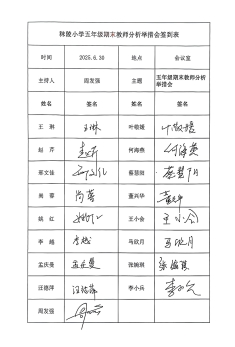 秣陵小学五年级期末教师分析举措会签到表
时间 2025.6.30 地点 会议室
主持人 周发强 主题 五年级期末教师分析举措会
姓名 签名 姓名 签名
王琳 王琳 叶敏媛 叶敏媛
赵芹 赵芹 何海燕 何海燕
邢文佳 邢文佳 蔡慧丽
尚蓉 尚蓉 董兴华 董兴华
姚红 姚红 王小会 王小会
李越 李越 马欣月 马欣月
孟庆曼 孟庆曼 张婉琪
汪德萍 汪德萍 李小兵
周发强 周发强